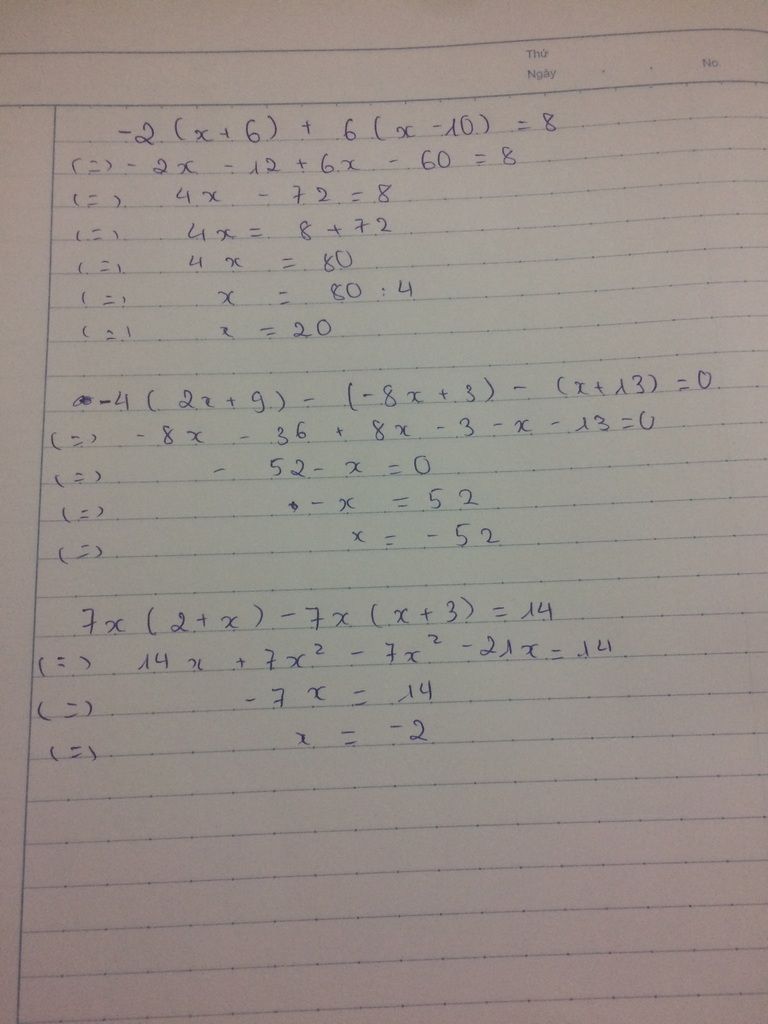 Thứ
Ngày
No.
-2 (x+6) + 6 (x -10) = 8
(=) - 2x - 12 + 6x - 60 = 8
(=) 4x - 72 = 8
(=) 4x = 8 + 72
(=) 4x = 80
(=) x = 80 : 4
(=) x = 20
-4 ( 2x + 9) - (-8x + 3) - (x+13) = 0
(=) - 8x - 36 + 8x - 3 - x - 13 = 0
(=) - 52 - x = 0
(=) - x = 52
(=) x = - 52
7x (2 + x) - 7x (x + 3) = 14
(=) 14x + 7x² - 7x² - 21x = 14
(=) -7x = 14
(=) x = -2